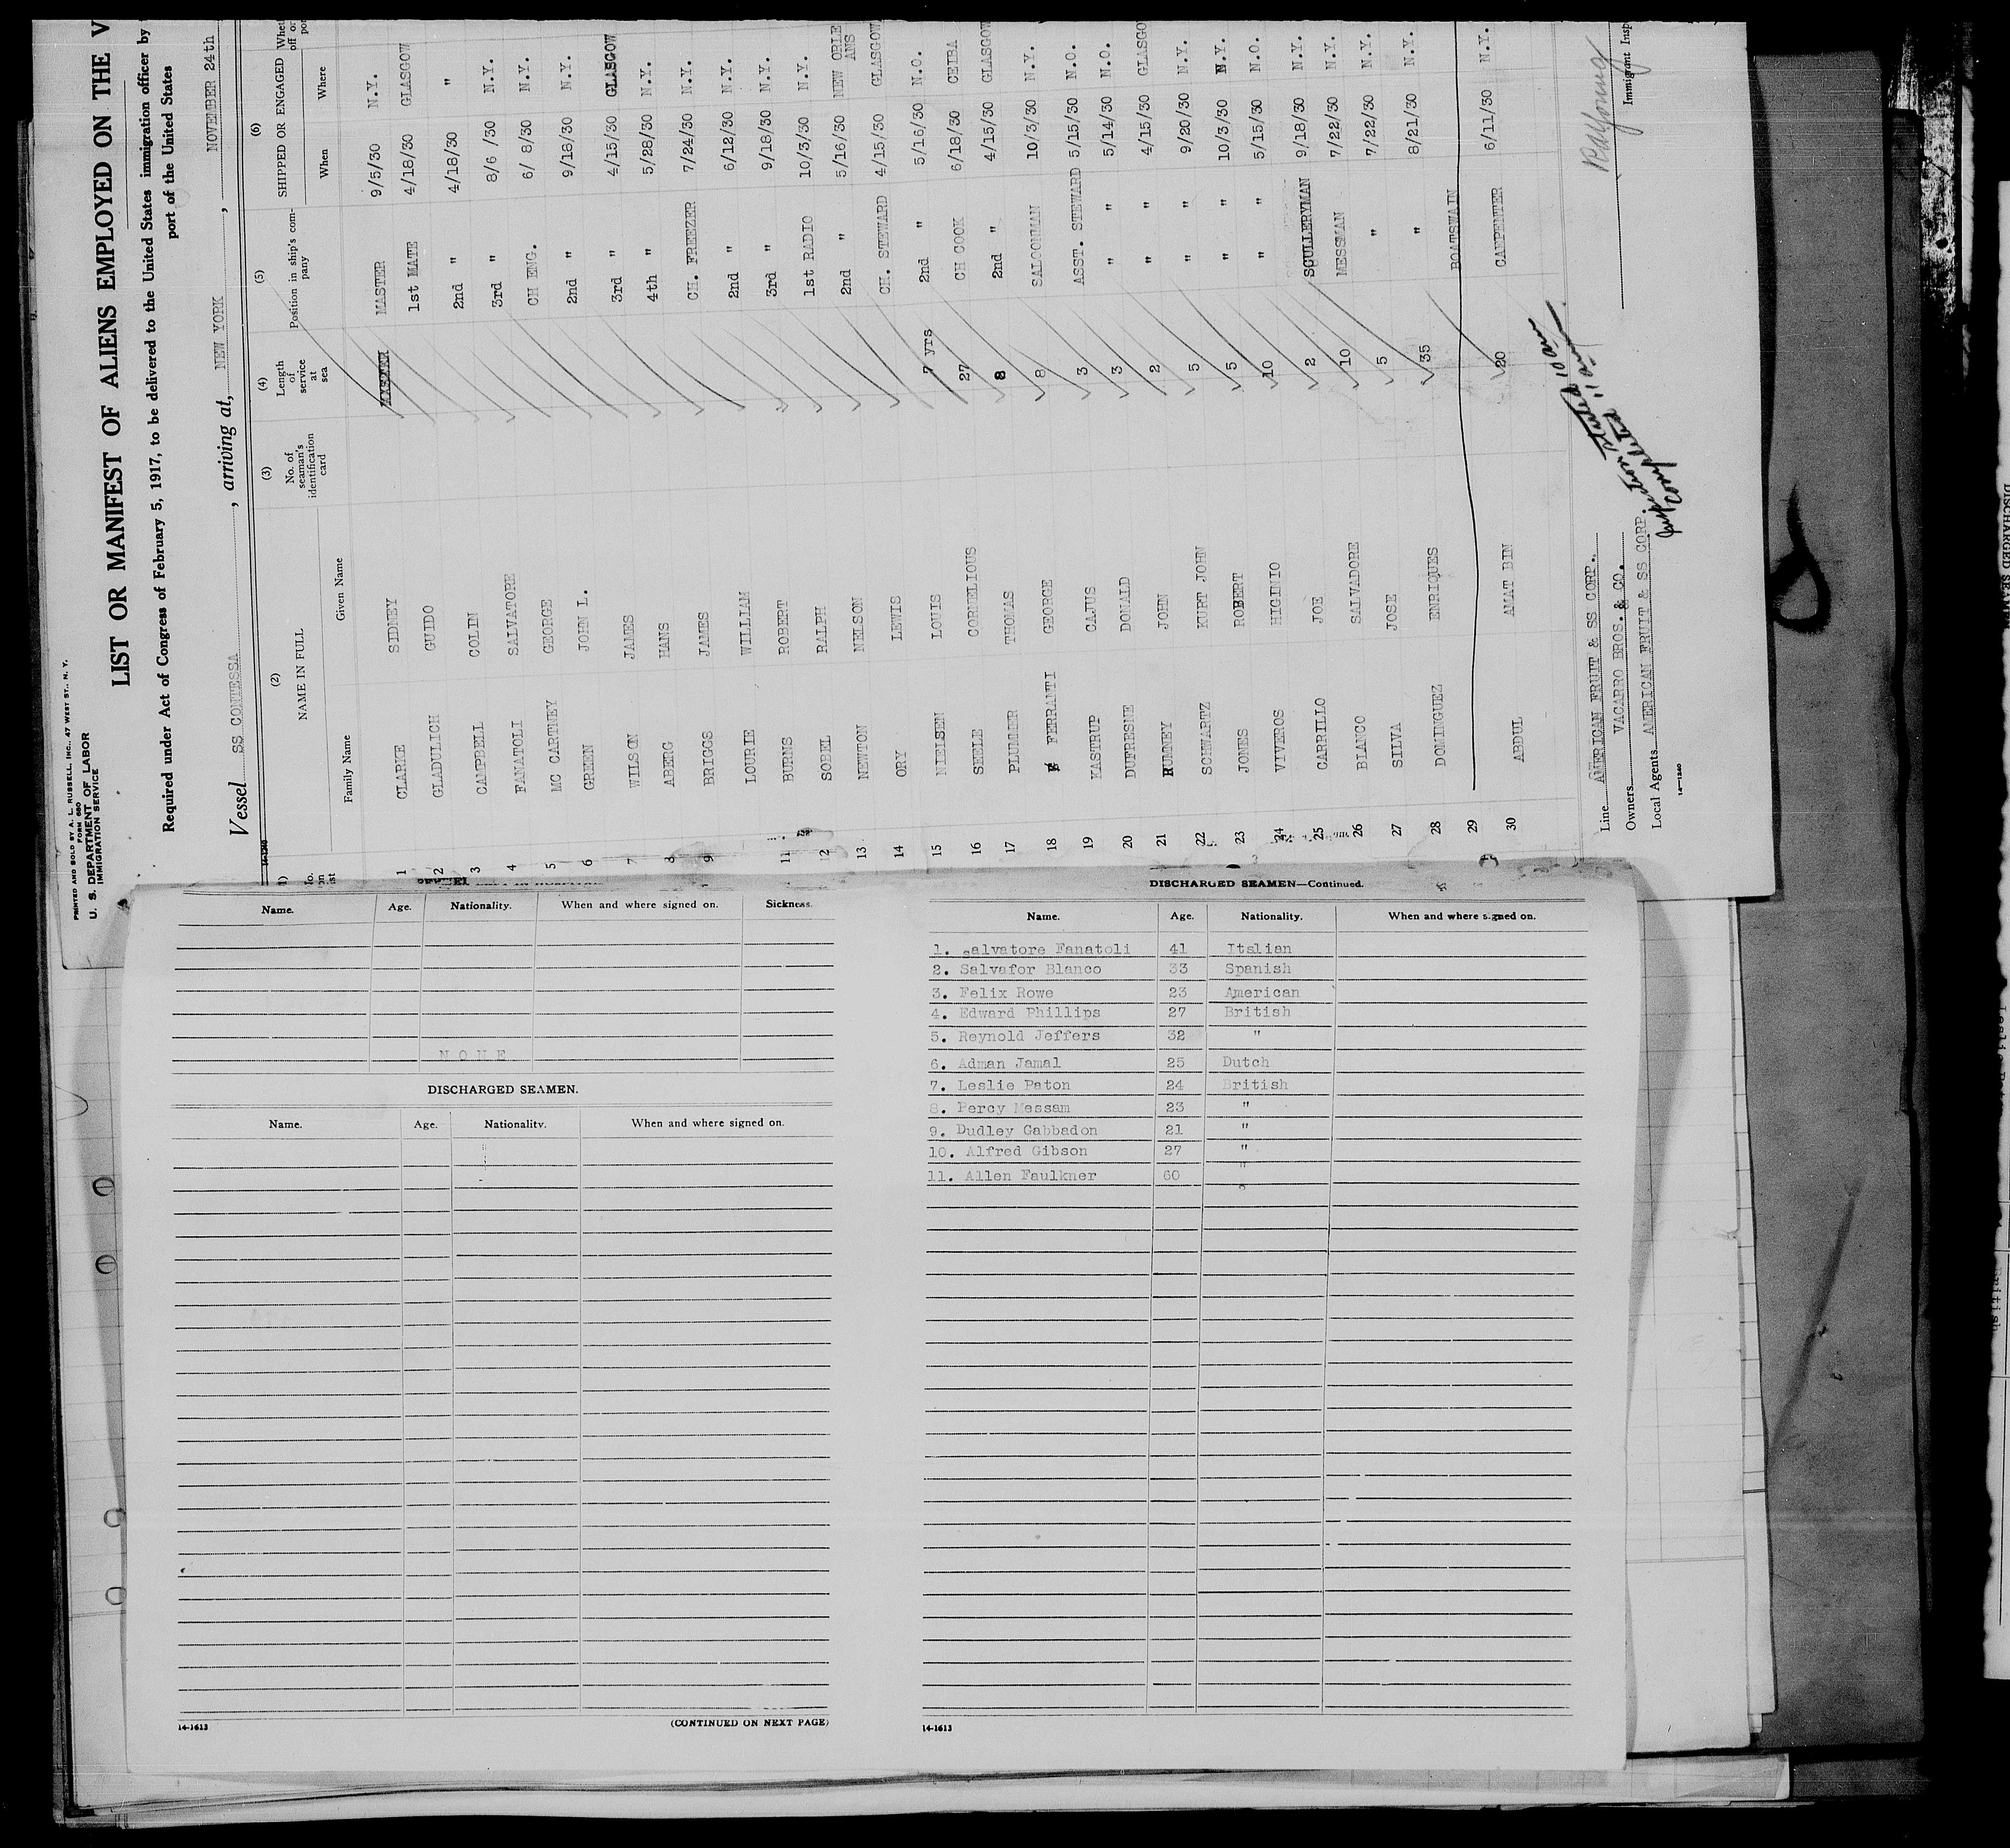 PRINTED AND SOLD BY A. L. RUSSELL, INC., 47 WEST ST., N. Y.
FORM 680
U. S. DEPARTMENT OF LABOR
IMMIGRATION SERVICE
LIST OR MANIFEST OF ALIENS EMPLOYED ON THE V
Required under Act of Congress of February 5, 1917, to be delivered to the United States immigration officer by
port of the United States
Vessel SS CONTESSA , arriving at, NEW YORK , NOVEMBER 24th
(2) (3) (4) (5) (6)
NAME IN FULL No. of seaman's identification card Length of service at sea Position in ship's com-pany SHIPPED OR ENGAGED
Family Name Given Name When Where
1 CLARKE SIDNEY MASTER 9/5/30 N.Y.
2 GLADULICH GUIDO 1st MATE 4/18/30 GLASGOW
3 CAMPBELL COLIN 2nd " 4/18/30 "
4 FANATOLI SALVATORE 3rd " 8/6 /30 N.Y.
5 MC CARTNEY GEORGE CH ENG. 6/ 8/30 N.Y.
6 GREEN JOHN L. 2nd " 9/18/30 N.Y.
7 WILSON JAMES 3rd " 4/15/30 GLASGOW
8 ABERG HANS 4th " 5/28/30 N.Y.
9 BRIGGS JAMES CH. FREEZER 7/24/30 N.Y.
LOURIE WILLIAM 2nd " 6/12/30 N.Y.
11 BURNS ROBERT 3rd " 9/18/30 N.Y.
12 SOBEL RALPH 1st RADIO 10/3/30 N.Y.
13 NEWTON NELSON 2nd " 5/16/30 NEW ORLE ANS
14 ORY LEWIS CH. STEWARD 4/15/30 GLASGOW
15 NIELSEN LOUIS 7 yrs 2nd " 5/16/30 N.O.
16 SEELE CORNELIOUS 27 CH COOK 6/18/30 CEIBA
17 PLUMMER THOMAS 8 2nd " 4/15/30 GLASGOW
18 FERRANTI GEORGE 8 SALOONMAN 10/3/30 N.Y.
19 KASTRUP CAJUS 3 ASST. STEWARD 5/15/30 N.O.
20 DUFRESNE DONALD 3 " " 5/14/30 N.O.
21 RUMNEY JOHN 2 " " 4/15/30 GLASGO
22 SCHWARTZ KURT JOHN 5 " " 9/20/30 N.Y.
23 JONES ROBERT 5 " " 10/3/30 N.Y.
24 VIVEROS HIGINIO 10 " " 5/15/30 N.O.
25 CARRILLO JOE 2 SCULLERYMAN 9/18/30 N.Y.
26 BLANCO SALVADORE 10 MESSMAN 7/22/30 N.Y.
27 SILVA JOSE 5 " 7/22/30 N.Y.
28 DOMINGUEZ ENRIQUES 35 " 8/21/30 N.Y.
29 BOATSWAIN
30 ABDUL AMAT BIN 20 CARPENTER 6/11/30 N.Y.
Line AMERICAN FRUIT & SS CORP.
Owners VACARRO BROS. & CO.
Local Agents AMERICAN FRUIT & SS CORP.
started 10 am
completed 11 am
Immigrant Insp
14-1240
Name. Age. Nationality. When and where signed on. Sickness.
NONE
DISCHARGED SEAMEN.
Name. Age. Nationality. When and where signed on.
14-1613
(CONTINUED ON NEXT PAGE)
DISCHARGED SEAMEN—Continued.
Name. Age. Nationality. When and where signed on.
1. Salvatore Fanatoli 41 Italian
2. Salvafor Blanco 33 Spanish
3. Felix Rowe 23 American
4. Edward Phillips 27 British
5. Reynold Jeffers 32 "
6. Adman Jamal 25 Dutch
7. Leslie Paton 24 British
8. Percy Messam 23 "
9. Dudley Gabbadon 21 "
10. Alfred Gibson 27 "
11. Allen Faulkner 60 "
14-1613